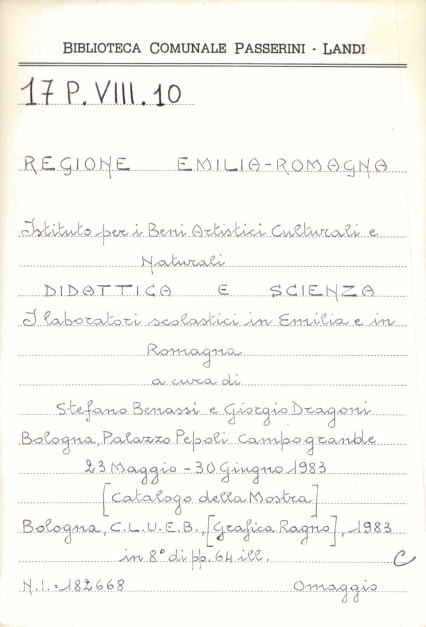 BIBLIOTECA COMUNALE PASSERINI - LANDI
17 P. VIII. 10
REGIONE EMILIA-ROMAGNA
Istituto per i Beni Artistici Culturali e
Naturali
DIDATTICA E SCIENZA
I laboratori scolastici in Emilia e in
Romagna
a cura di
Stefano Benassi e Giorgio Dragoni
Bologna, Palazzo Pepoli Campogrande
23 Maggio - 30 Giugno 1983
[Catalogo della Mostra]
Bologna, C.L.U.E.B., [Grafica Ragno], 1983
in 8° di pp. 64 ill. C
N.I. = 182668 Omaggio